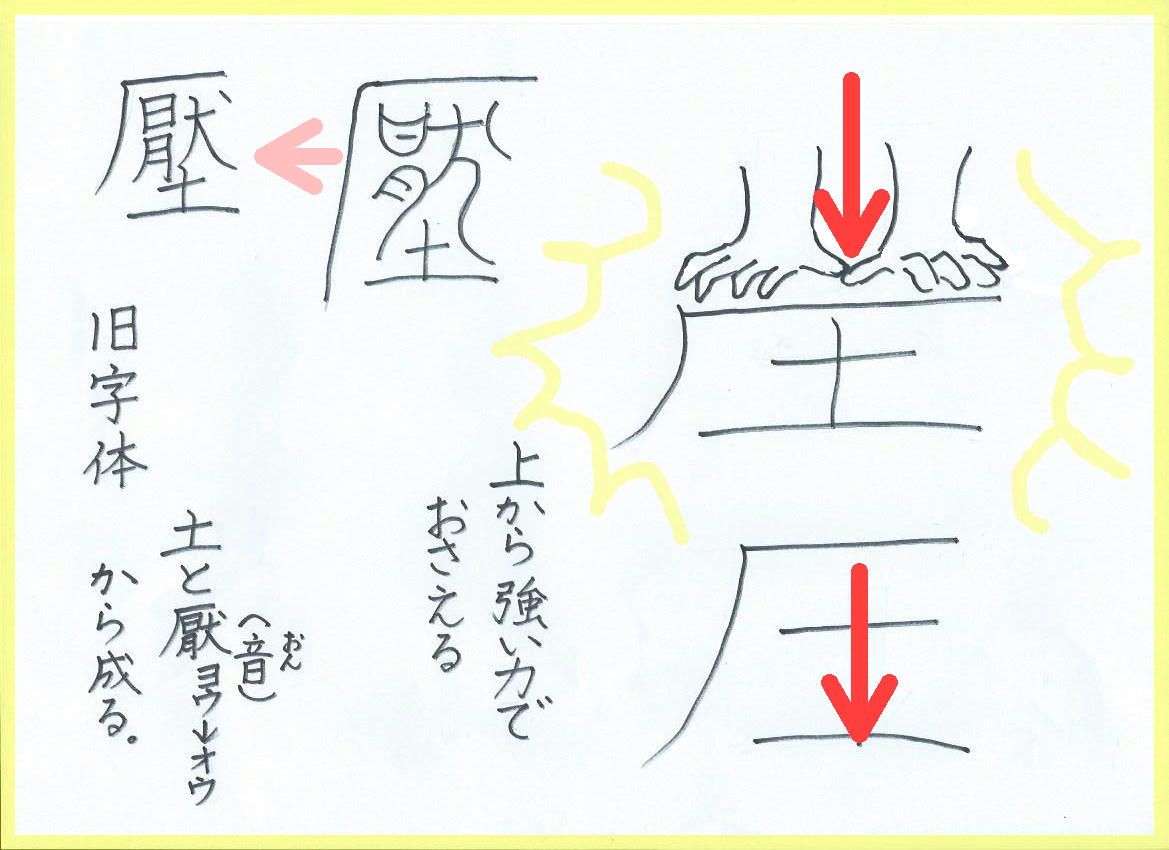 圧
圧
上から強い力で
おさえる
壓
壓
旧字体
土と厭ヨウ→オウ
（音）
おん
から成る。